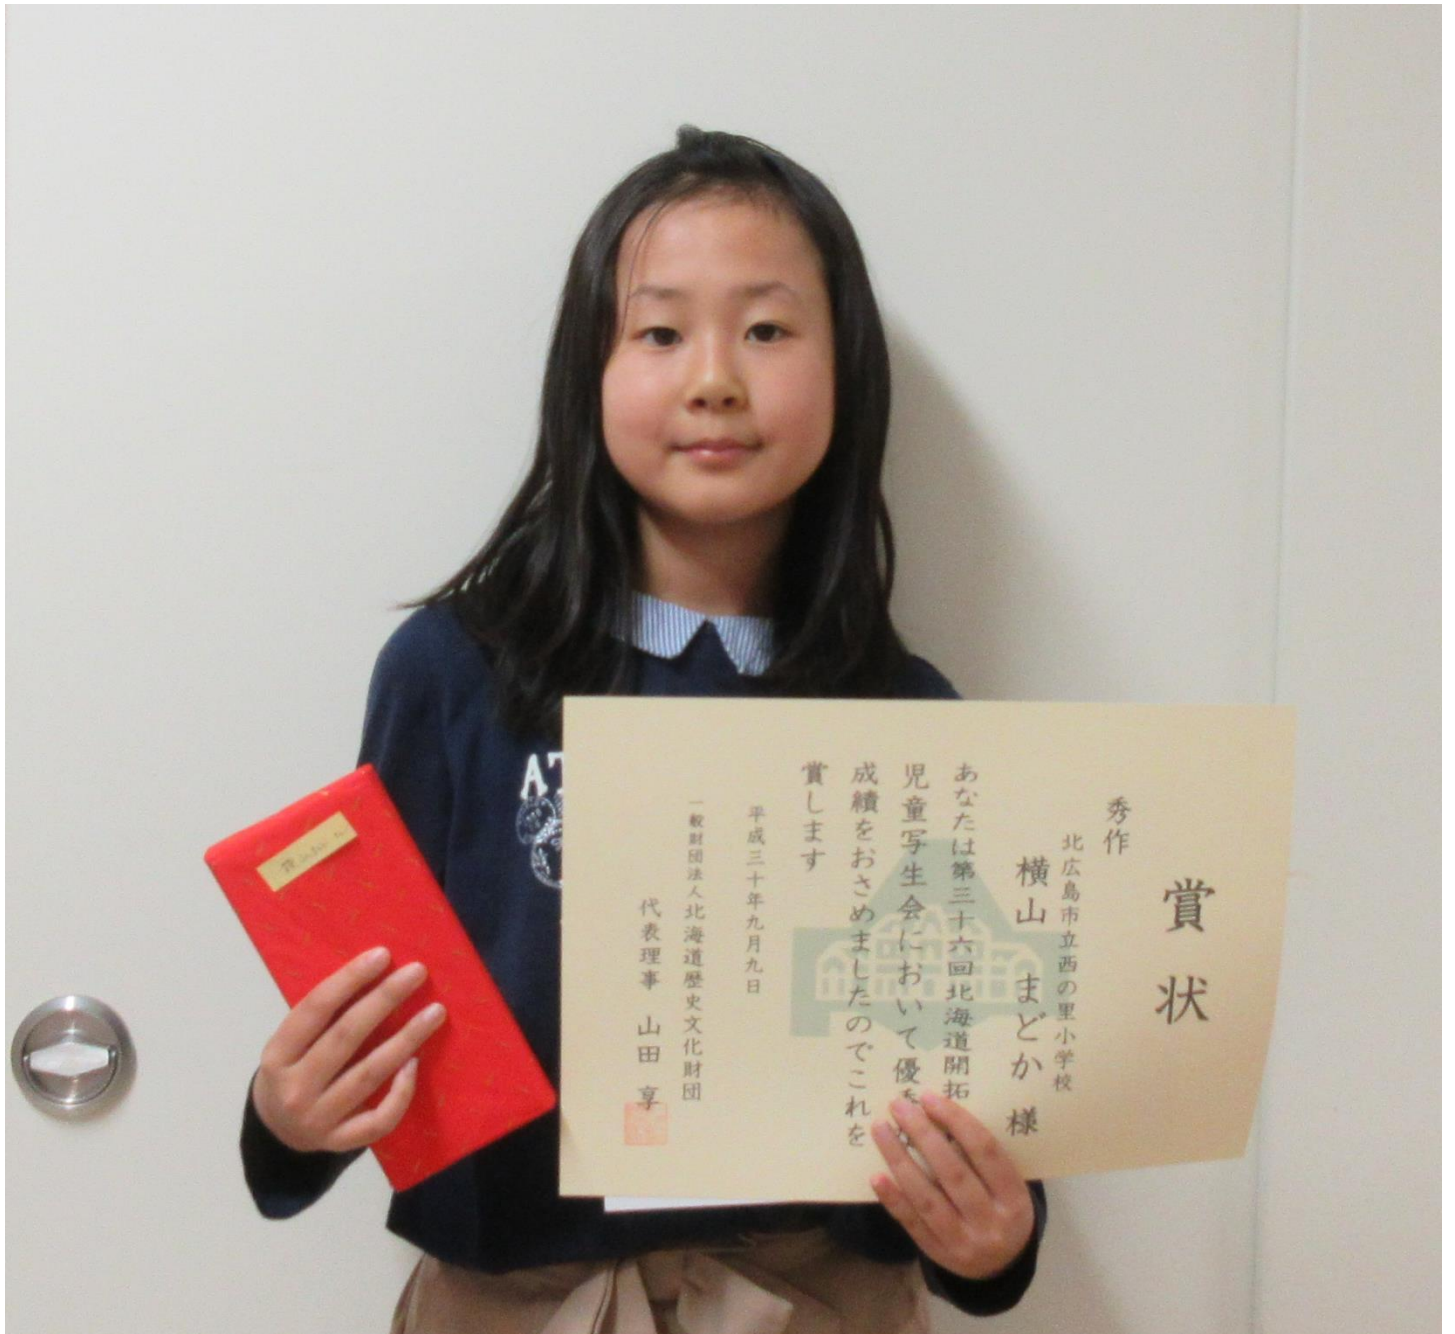 賞状
秀作
北広島市立西の里小学校
横山 まどか 様
あなたは第三十六回北海道開拓
児童写生会において優秀な
成績をおさめましたのでこれを
賞します
平成三十年九月九日
一般財団法人北海道歴史文化財団
代表理事 山田 享
AT